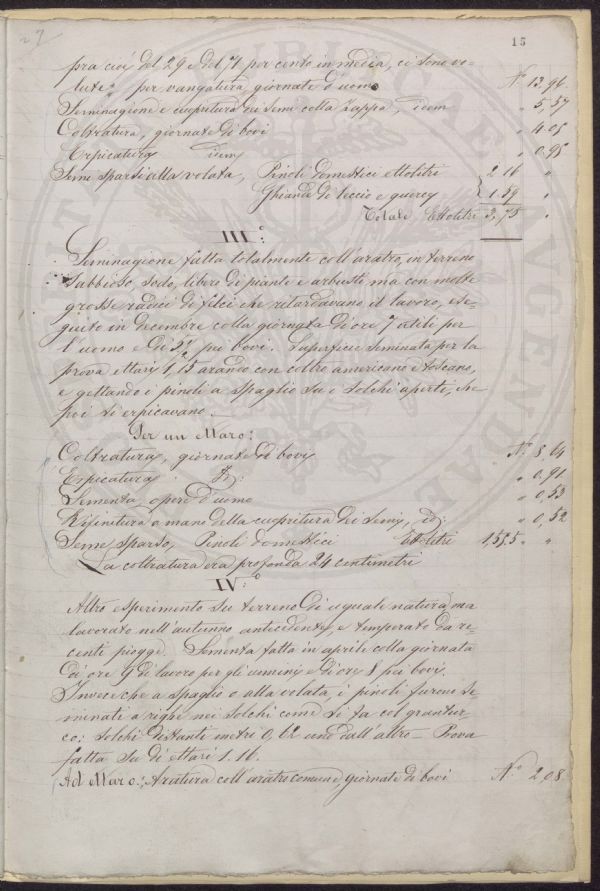 27
15
pra cioè del 29 e del 71 per cento in media, ci sono vo-
lute: per vangatura giornate d'uomo N.º 13,96.
Seminagione e copritura dei semi colla zappa, idem „ 5,57
Coltratura, giornate di bovi „ 4.05
Erpicatura idem „ 0.95
Seme sparso alla volata, Pinoli domestici ettolitri 2 16 „
Ghiande di leccio e quercy 1.59 „
Totale Ettolitri 3,75 „
III.º
Seminagione fatta totalmente coll'aratro, in terreno
sabbioso, sodo, libero di piante e arbusti ma con molte
grosse radici di felci che ritardavano il lavoro, ese-
guito in decembre colla giornata di ore 7 utili per
l'uomo e di 5½ pei bovi. Superficie seminata per la
prova ettari 1,15 arando con coltro americano e toscano,
e gettando i pinoli a spaglio su i solchi aperti, che
poi si erpicavano.
Per un ettaro:
Coltratura, giornate di bovi N.º 8,64
Erpicatura Id: „ 0.91
Sementa, opere d'uomo „ 0,53
Rifinitura a mano della copritura dei semi, id: „ 0,52
Seme sparso, Pinoli domestici Ettolitri 1,595 „ „
La coltratura era profonda 24 centimetri
IV.º
Altro esperimento su terreno di uguale natura, ma
lavorato nell'autunno antecedente, e temperato da re-
centi pioggie. Sementa fatta in aprile colla giornata
di ore 9 di lavoro per gli uomini e di ore 8 pei bovi.
Invece che a spaglio o alla volata, i pinoli furono se-
minati a righe nei solchi come si fa col grantur-
co: solchi distanti metri 0, uno dall'altro — Prova
fatta su di ettari 1.16.
Ad ettaro: Aratura coll'aratro comune, giornate di bovi N.º 2,08.